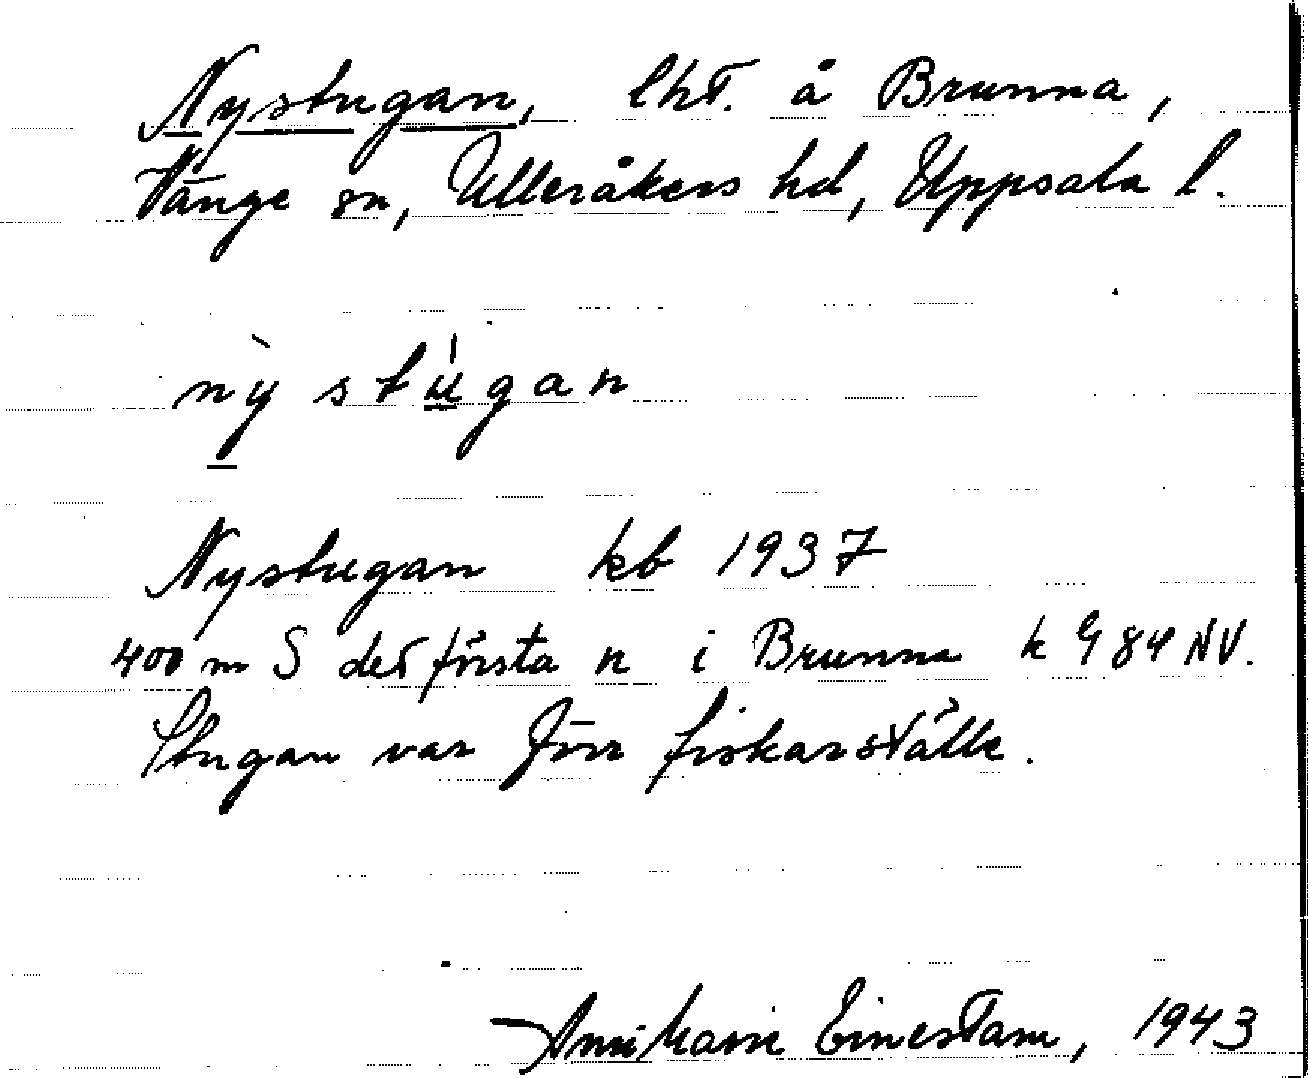 Nystugan, lht. å Brunna,
Vänge sn, Ulleråkers hd, Uppsala l.
nỳ stú̠gan
Nystugan kb 1937
400 m S det första n i Brunna k G 84 NV.
Stugan var förr fiskarställe.
Einestam, 1943